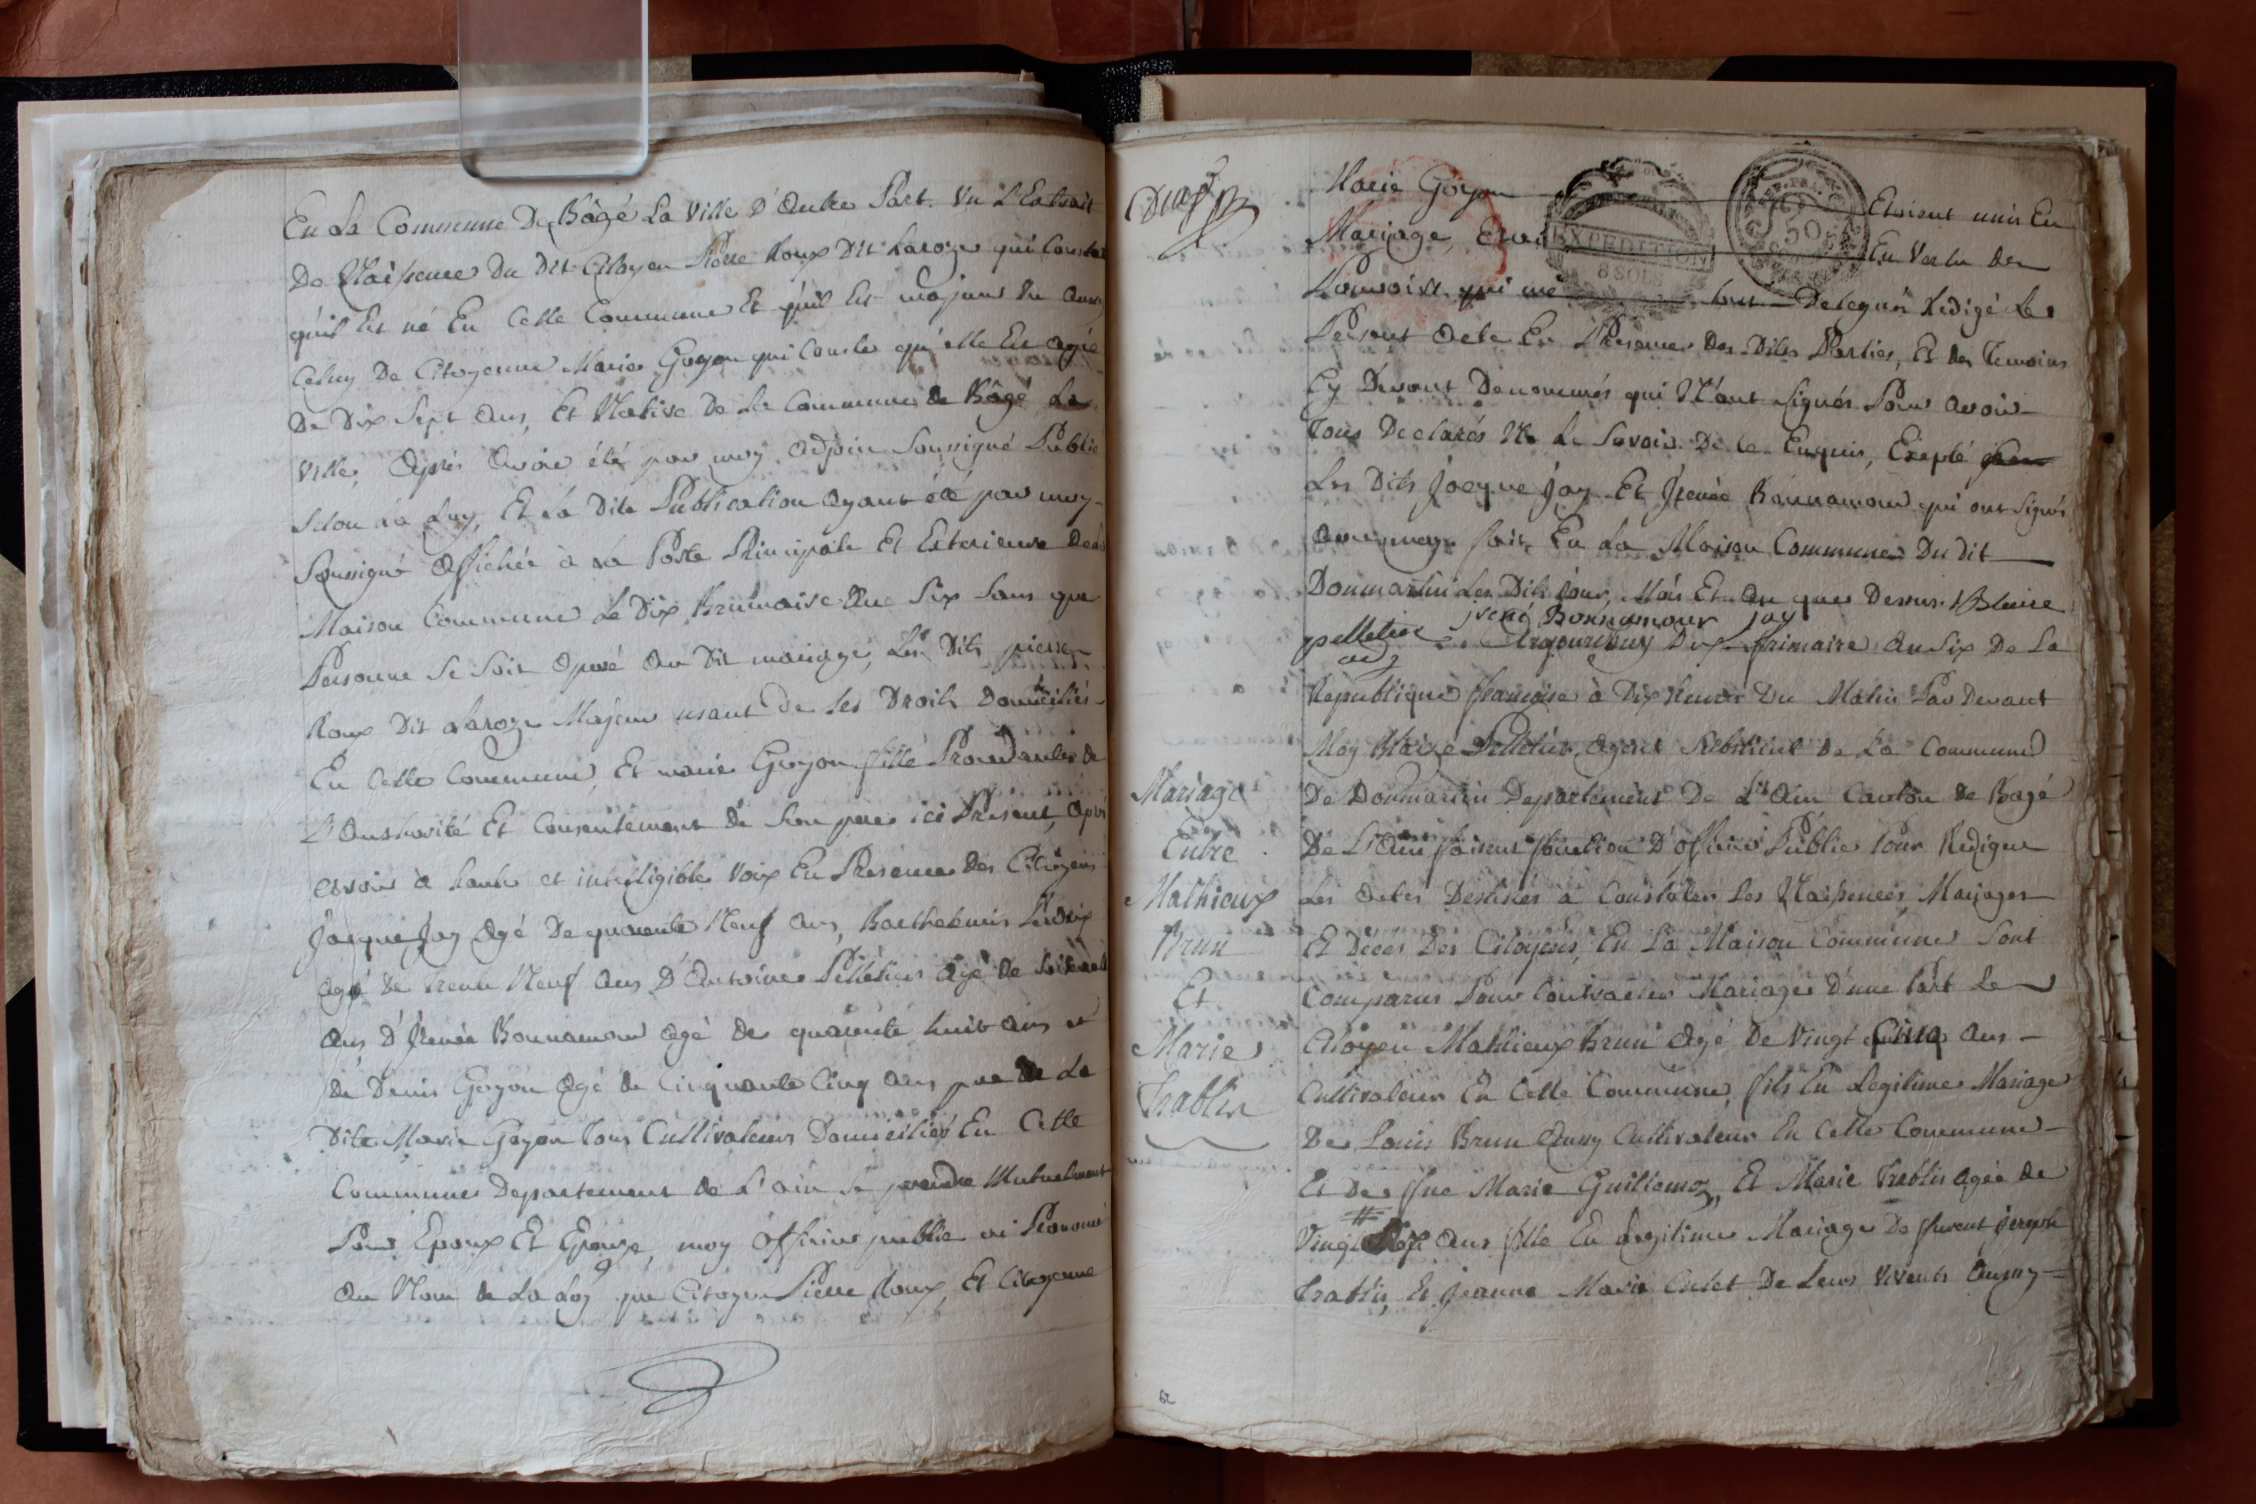 En La Commune De Bâgé La Ville D'Autre Part. Vu L'Extrait
De Naissence Du Dit Citoyen Pierre Roux Dit Laroze qui Conste
qu'il Est né En Cette Commune Et qu'il Est majeur
Celuy De Citoyenne Marie Goyon qui Conste qu'elle Est agée
De Dix Sept ans, Et Native De La Commune de Bâgé La
Ville, Après Avoir été par moy adjoin Soussigné Publié
Selon La Loy, Et La Dite Publication ayant été par moy
Soussigné Affichée à La Porte Principale Et Exterieure de la
Maison Commune Le Dix Brumaire An Six Sans que
Personne Se Soit Oposé Au Dit mariage, Les Dits pierre
Roux Dit Laroze Majeur usant De Ses Droits Domiciliés
En Cette Commune, Et marie Goyon fille Procedante de
L'Authorité Et Consentement de Son pere ici Present, Après
avoir à haute et intelligible Voix En Presence des Citoyens
Jacque Jay Agé De quarente Neuf ans, Barthelemis
agé de trente Neuf ans D'Antoine Pelletier Agé de
ans D'Irenée Bonnamour agé de quarente huit ans et
de Denis Goyon agé de Cinquante Cinq ans pere de La
Dite Marie Goyon Tous Cultivateurs Domiciliés En Cette
Commune Departement de L'ain se prendre Mutuelment
Pour Epoux Et Epouse, moy Officier public ai Prononcé
Au Nom de La Loy que Citoyen Pierre Roux, Et Citoyenne
Marie Goyon Etoient unis En
Mariage, Et En Vertu des
Pouvoirs qui me sont Delegués Redigé Le
Present Acte En Presence Des Dites Parties, Et des Temoins
Cy Devant Denommés qui N'ont Signés Pour Avoir
Tous Declarés Ne Le Savoir De Ce Enquis, Exepté
Les Dits Jacque Jay Et Irenée Bonnamour qui ont Signés
Avec moy fait En La Maison Commune Du dit
Donmartin Les Dits Jour, Mois Et An que Dessus. Blaise
pelletier Irené Bonnamour Jay
adj
Aujourdhuy Dix frimaire An Six De La
Republique française à Dix heures Du Matin Par Devant
Moy Blaize Pelletier, Agent de La Commune
De Donmartin Departement De L'Ain Canton de Bagé
De L'Ain faisent fonction D'Officier Public Pour Rediger
Les Actes Destinés à Constater Les Naissences, Mariages
Et Décès Des Citoyens, En La Maison Commune Sont
Comparus Pour Contracter Mariage D'une Part Le
Citoyen Mathieux Brun Agé De Vingt Cinq Ans
Cultivateur En Cette Commune, fils En Legitime Mariage
De Louis Brun Aussy Cultivateur En Cette Commune
Et De fue Marie Guillemoz, Et Marie Trablis agée de
Vingt ans fille En Legitime Mariage De furent Joseph
Trablis, Et Jeanne Marie De Leurs Vivents Aussy
Mariage
Entre
Mathieux
Brun
Et
Marie
Trablis
EXPEDITION
8 SOLS
50
62